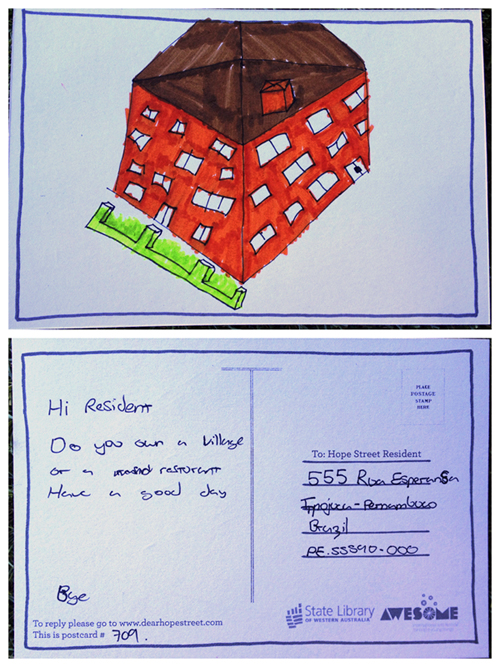 Hi Resident
Do you own a village
or a resturant
Have a good day
Bye
To reply please go to www.dearhopestreet.com
This is postcard # 709.
PLACE
POSTAGE
STAMP
HERE
To: Hope Street Resident
555 Rua Esperansa
Ipojuca-Pernambuco
Brazil
PE.55590-000
State Library
OF WESTERN AUSTRALIA
AWESOME